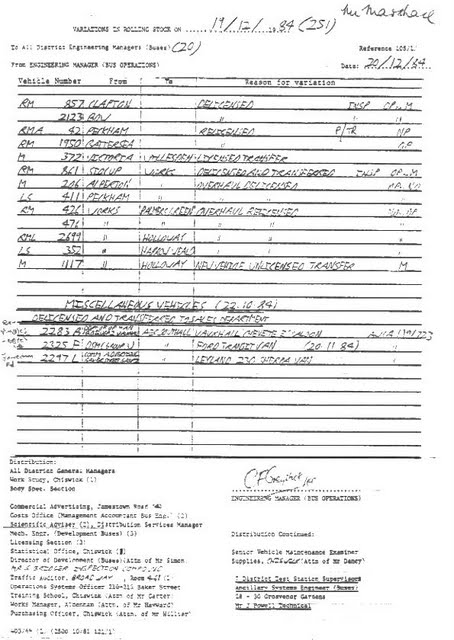 Mr Marshall
VARIATIONS IN ROLLING STOCK ON 19/12/1984 (251)
To All District Engineering Managers (Buses) (20)
Reference 105/1
From ENGINEERING MANAGER (BUS OPERATIONS)
Date: 20/12/84
Vehicle Number From To Reason for variation
RM 857 CLAPTON DELICENSED INSP OP M
2123 BOW " " "
RMA 42 PECKHAM RELICENSED P/TR NP
RM 1950 BATTERSEA " NP
M 372 VICTORIA WILLESDEN LICENSED TRANSFER
RM 861 SIDCUP WORKS DELICENSED AND TRANSFERRED INSP OP M
M 206 ALPERTON OVERHAUL DELICENSED
LS 411 PECKHAM " "
RM 426 WORKS PALMERS GREEN OVERHAUL RELICENSED
476 " " " "
RML 2699 " HOLLOWAY " "
LS 352 " "
M 1117 " HOLLOWAY NEW VEHICLE UNLICENSED TRANSFER M
MISCELLANEOUS VEHICLES (22.10.84)
DELICENSED AND TRANSFERRED TO SALES DEPARTMENT
2283 A VAUXHALL CHEVETTE SALOON
2325 F FORD TRANSIT VAN (20 11 84)
2297 L LEYLAND 230 SHERPA VAN
Distribution:
All District General Managers
Work Study, Chiswick (1)
Body Spec. Section
ENGINEERING MANAGER (BUS OPERATIONS)
Commercial Advertising, Jamestown Road
Costs Office (Management Accountant Bus Eng.)
Scientific Adviser (2), Distribution Services Manager
Mech. Engr. (Development Buses) (3)
Distribution Continued:
Licensing Section (3)
Statistical Office, Chiswick
Senior Vehicle Maintenance Examiner
Director of Development (Buses) (Attn of Mr Simon)
Supplies, Chiswick (Attn of Mr Dancy)
Traffic Auditor, BROADWAY, Room
Operations Systems Officer 210-215 Baker Street
District Test Station Supervisors
Training School, Chiswick (Attn of Mr Carter)
Ancillary Systems Engineer (Buses)
Works Manager, Aldenham (Attn. of Mr Hayward)
18 - 30 Grosvenor Gardens
Purchasing Officer, Chiswick (Attn. of Mr Willier)
Mr J Powell Technical